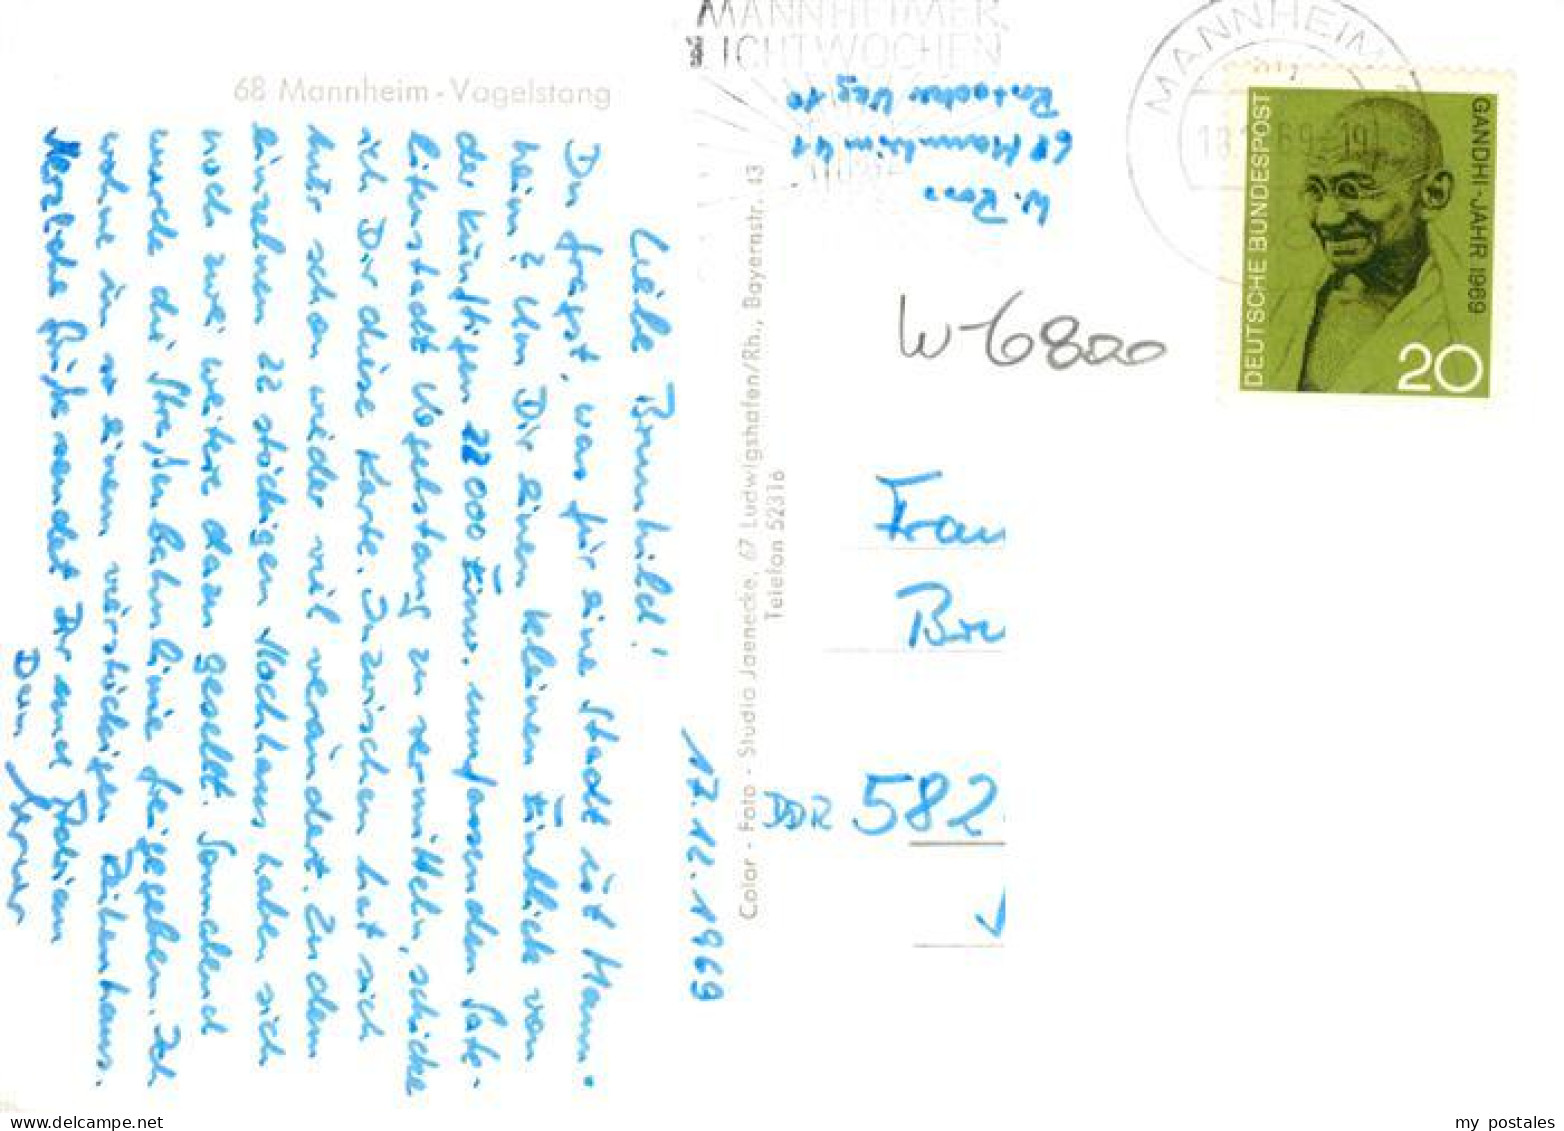 68 Mannheim-Vogelstang
17.12.1969
Liebe Brunhild!
Du fragst, was für eine Stadt ist Mann-
heim? Um Dir einen kleinen Einblick von
der künftigen 22000 Einw. umfassenden Sate-
litenstadt Vogelstang zu vermitteln, schicke
ich Dir diese Karte. Inzwischen hat sich
hier schon wieder viel verändert. Zu dem
einzelnen 22 stöckigen Hochhaus haben sich
noch zwei weitere dazu gesellt. Samstag
wurde die Straßenbahnlinie freigegeben. Ich
wohne in so einem vierstöckigen Reihenhaus.
Herzliche Grüße sendet Dir und
Dein Werner
Color - Foto - Studio Jaenecke, 67 Ludwigshafen/Rh., Bayernstr. 43
Telefon 52316
MANNHEIMER
LICHTWOCHEN
W.
68 Mannheim 41
Weg 10
MANNHEIM
69-19
DEUTSCHE BUNDESPOST
GANDHI-JAHR 1969
20
W-6800
Frau
Bru
DDR 582
my postales